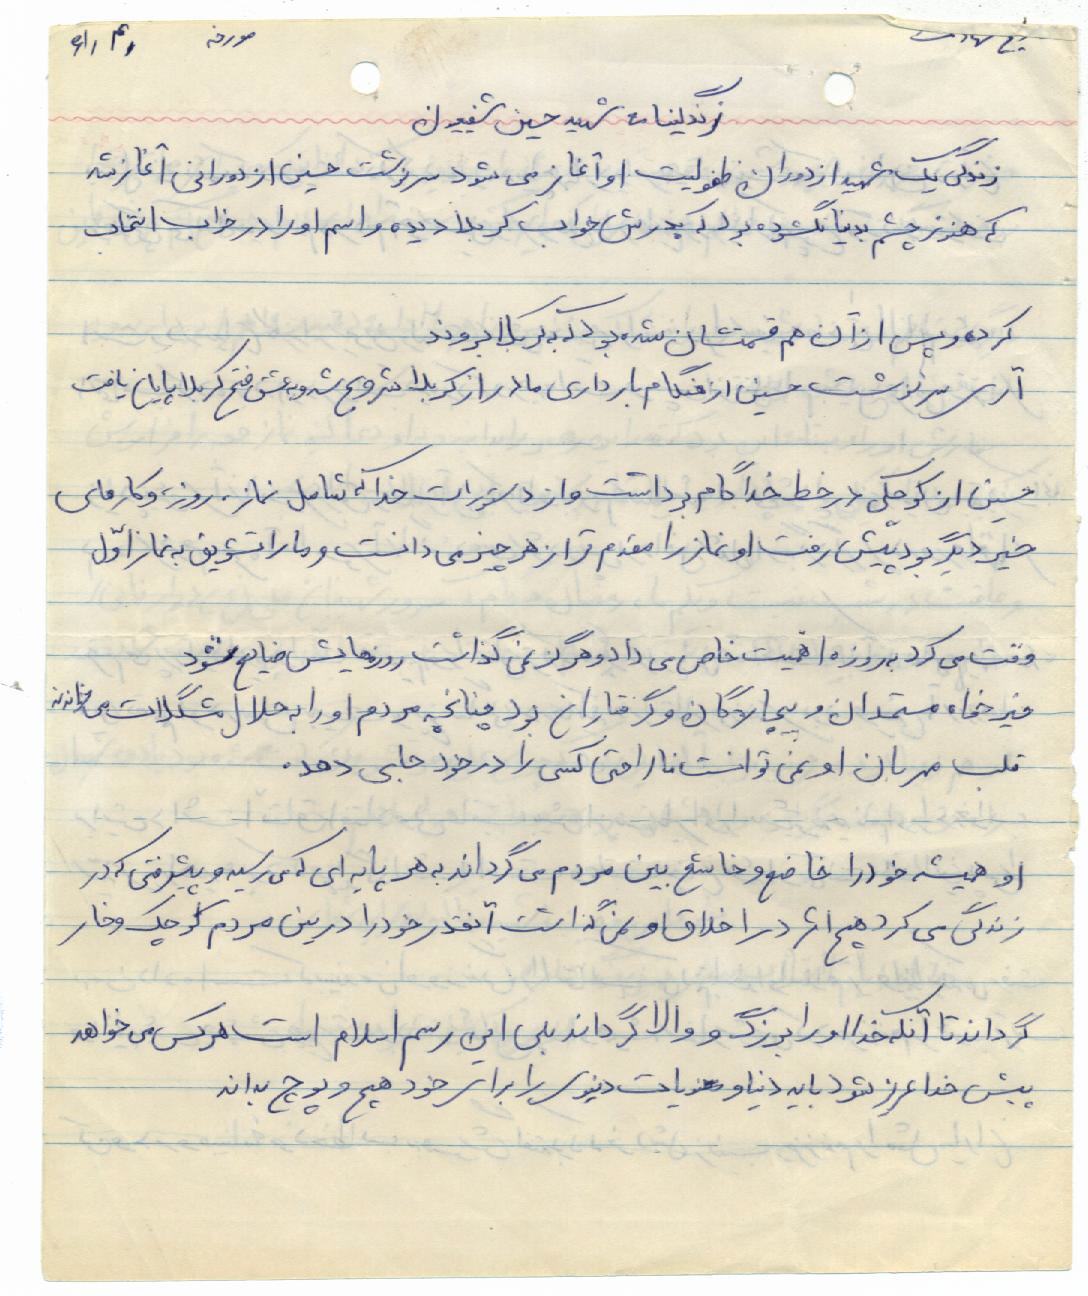 مورخه
زندگینامه شهید حسین شفیعیان
زندگی یک شهید از دوران طفولیت او آغاز می شود سرنوشت حسین از دورانی آغاز شد
که هنوز چشم بدنیا نگشوده بود که پدرش خواب کربلا دیده و اسم او را در خواب انتخاب
کرده و پس از آن هم قسمتشان شده بود که به کربلا بروند
آری سرنوشت حسین از هنگام بارداری مادر از کربلا شروع شد و به عشق فتح کربلا پایان یافت
حسین از کوچکی در خط خدا گام برداشت و از دستورات خدا که شامل نماز، روزه، و کارهای
خیر دیگر بود پیش رفت او نماز را مقدم تر از هر چیز می دانست و ما را تشویق به نماز اوّل
وقت می کرد به روزه اهمیت خاص می داد و هرگز نمی گذاشت روزه هایش ضایع شود
خیرخواه مستمندان و بیچارگان و گرفتاران بود چنانچه مردم او را به حلال مشگلات می خواندند
قلب مهربان او نمی توانست ناراحتی کسی را در خود جای دهد.
او همیشه خود را خاضع و خاشع بین مردم می گرداند به هر پایه ای که می رسید و پیشرفتی که در
زندگی می کرد هیچ اثر در اخلاق او نمی گذاشت آنقدر خود را در بین مردم کوچک و خار
گرداند تا آنکه خدا او را بزرگ و والا گرداند بلی این رسم اسلام است هر کس می خواهد
پیش خدا عزیز شود باید دنیا و حیات دنیوی را برای خود هیچ و پوچ بداند